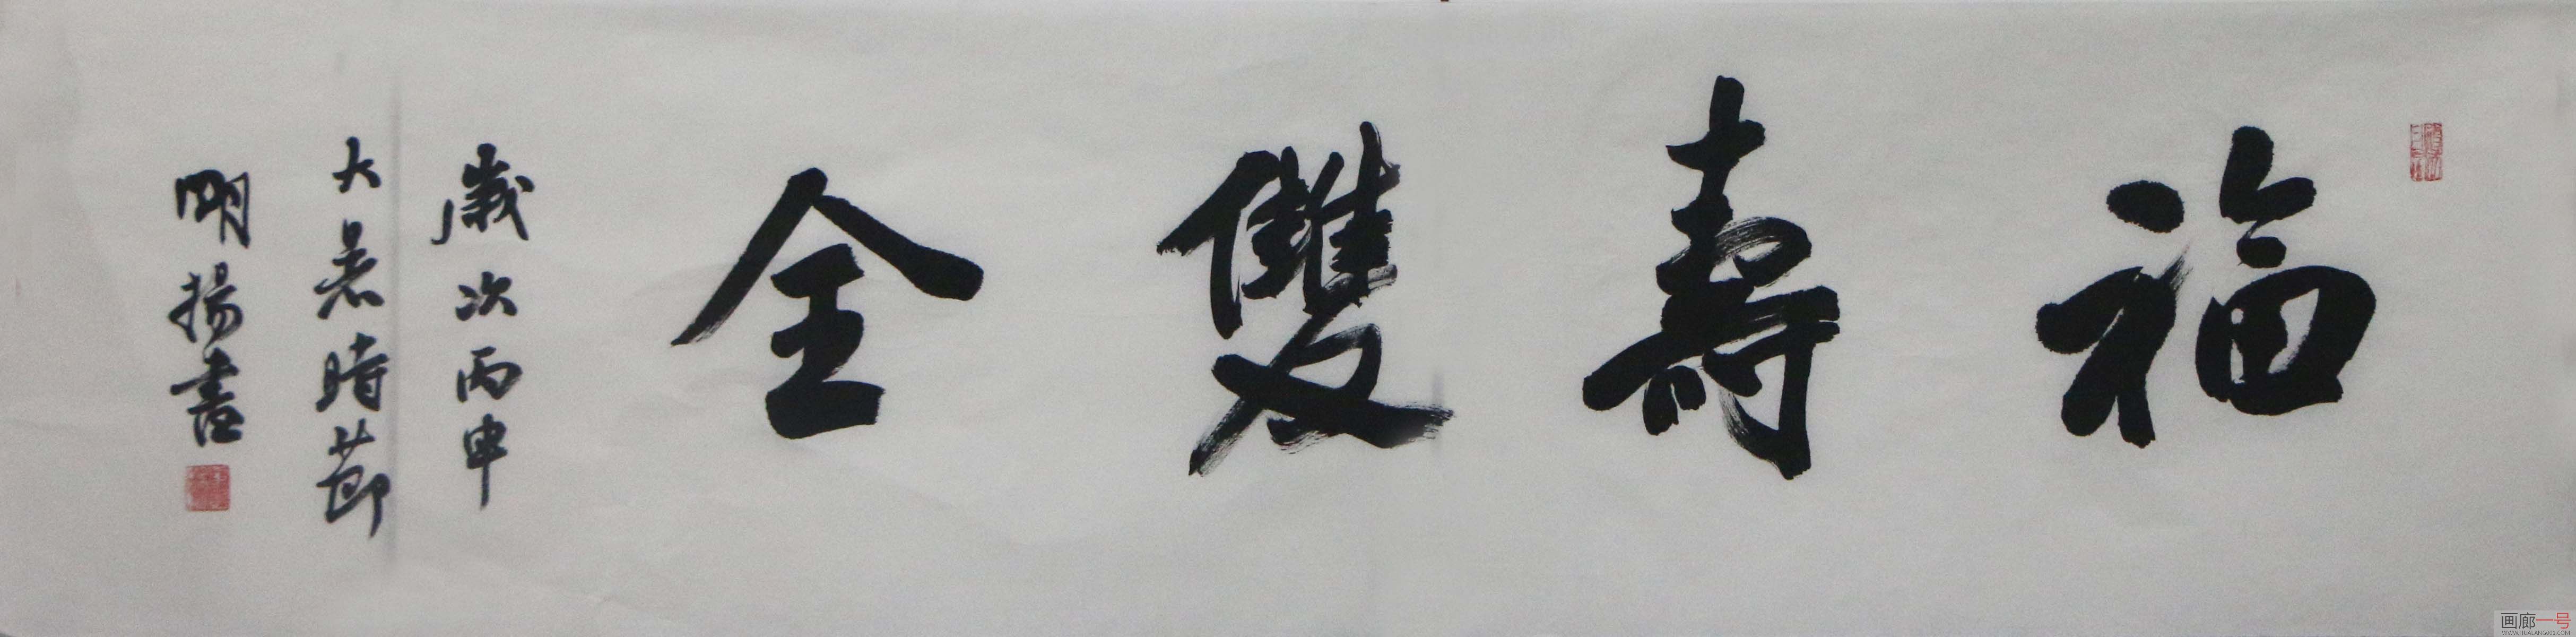 福壽雙全
歲次丙申
大暑時節
明揚書
画廊一号